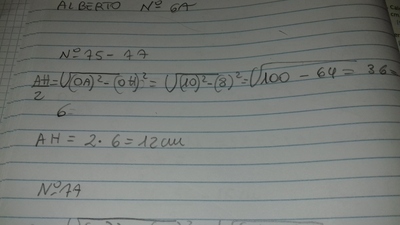 ALBERTO Nº 6A
Nº 75-77
AH/2=√(OA)²-(OH)²=√(10)²-(8)²=√100-64=36=
6
AH=2·6=12cm
Nº77